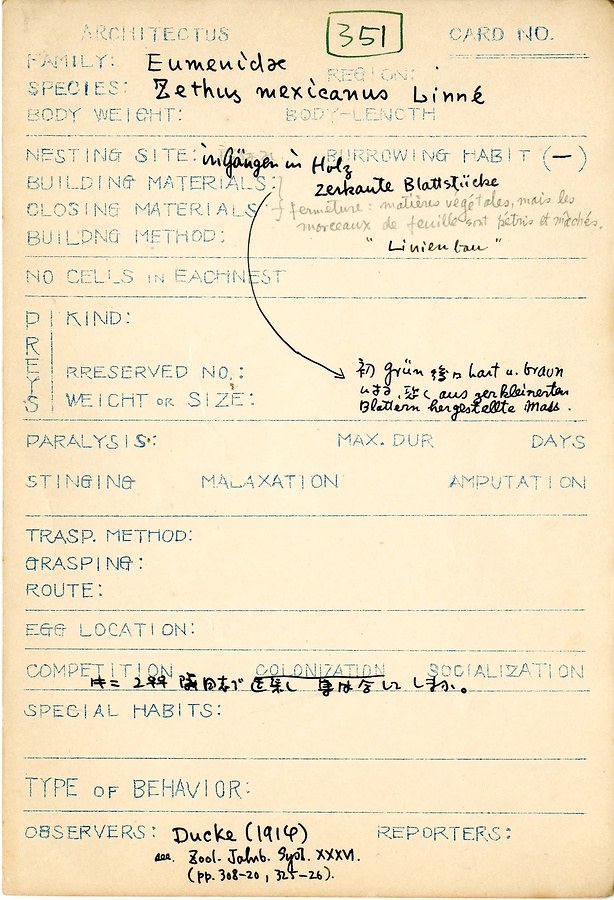 ARCHITECTUS 351 CARD NO.
FAMILY: Eumenidæ REGION:
SPECIES: Zethus mexicanus Linné
BODY WEIGHT: BODY-LENGTH
NESTING SITE: in Gängen in Holz BURROWING HABIT (—)
BUILDING MATERIALS: zerkaute Blattstücke
CLOSING MATERIALS fermeture: matières végétales, mais les
morceaux de feuille sont pétris et mâchés.
BUILDNG METHOD: "Linienbau"
NO CELLS IN EACHNEST
PREYS
KIND:
RRESERVED NO.: 初 grün 後ニ hart u. braun
WEIGHT OR SIZE: aus zerkleinerten
Blättern hergestellte Mass.
PARALYSIS: MAX. DUR DAYS
STINGING MALAXATION AMPUTATION
TRASP. METHOD:
GRASPING:
ROUTE:
EGG LOCATION:
COMPETITION COLONIZATION SOCIALIZATION
SPECIAL HABITS:
TYPE OF BEHAVIOR:
OBSERVERS: Ducke (1914) REPORTERS:
see. Zool. Jahrb. Syst. XXXVI.
(pp. 308-20, 325-26).